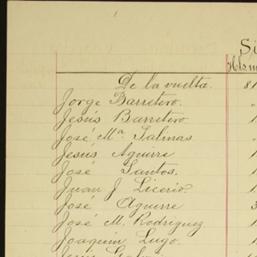 Si
Hls. m
De la vuelta. 81
Jorge Barretero.
Jesús Barretero 1
José Ma. Salinas
Jesús Aguirre 1
José Santos. 1
Juan J Licerio. 1
José Aguirre 3
José M. Rodriguez 1
Joaquin Lugo. 1